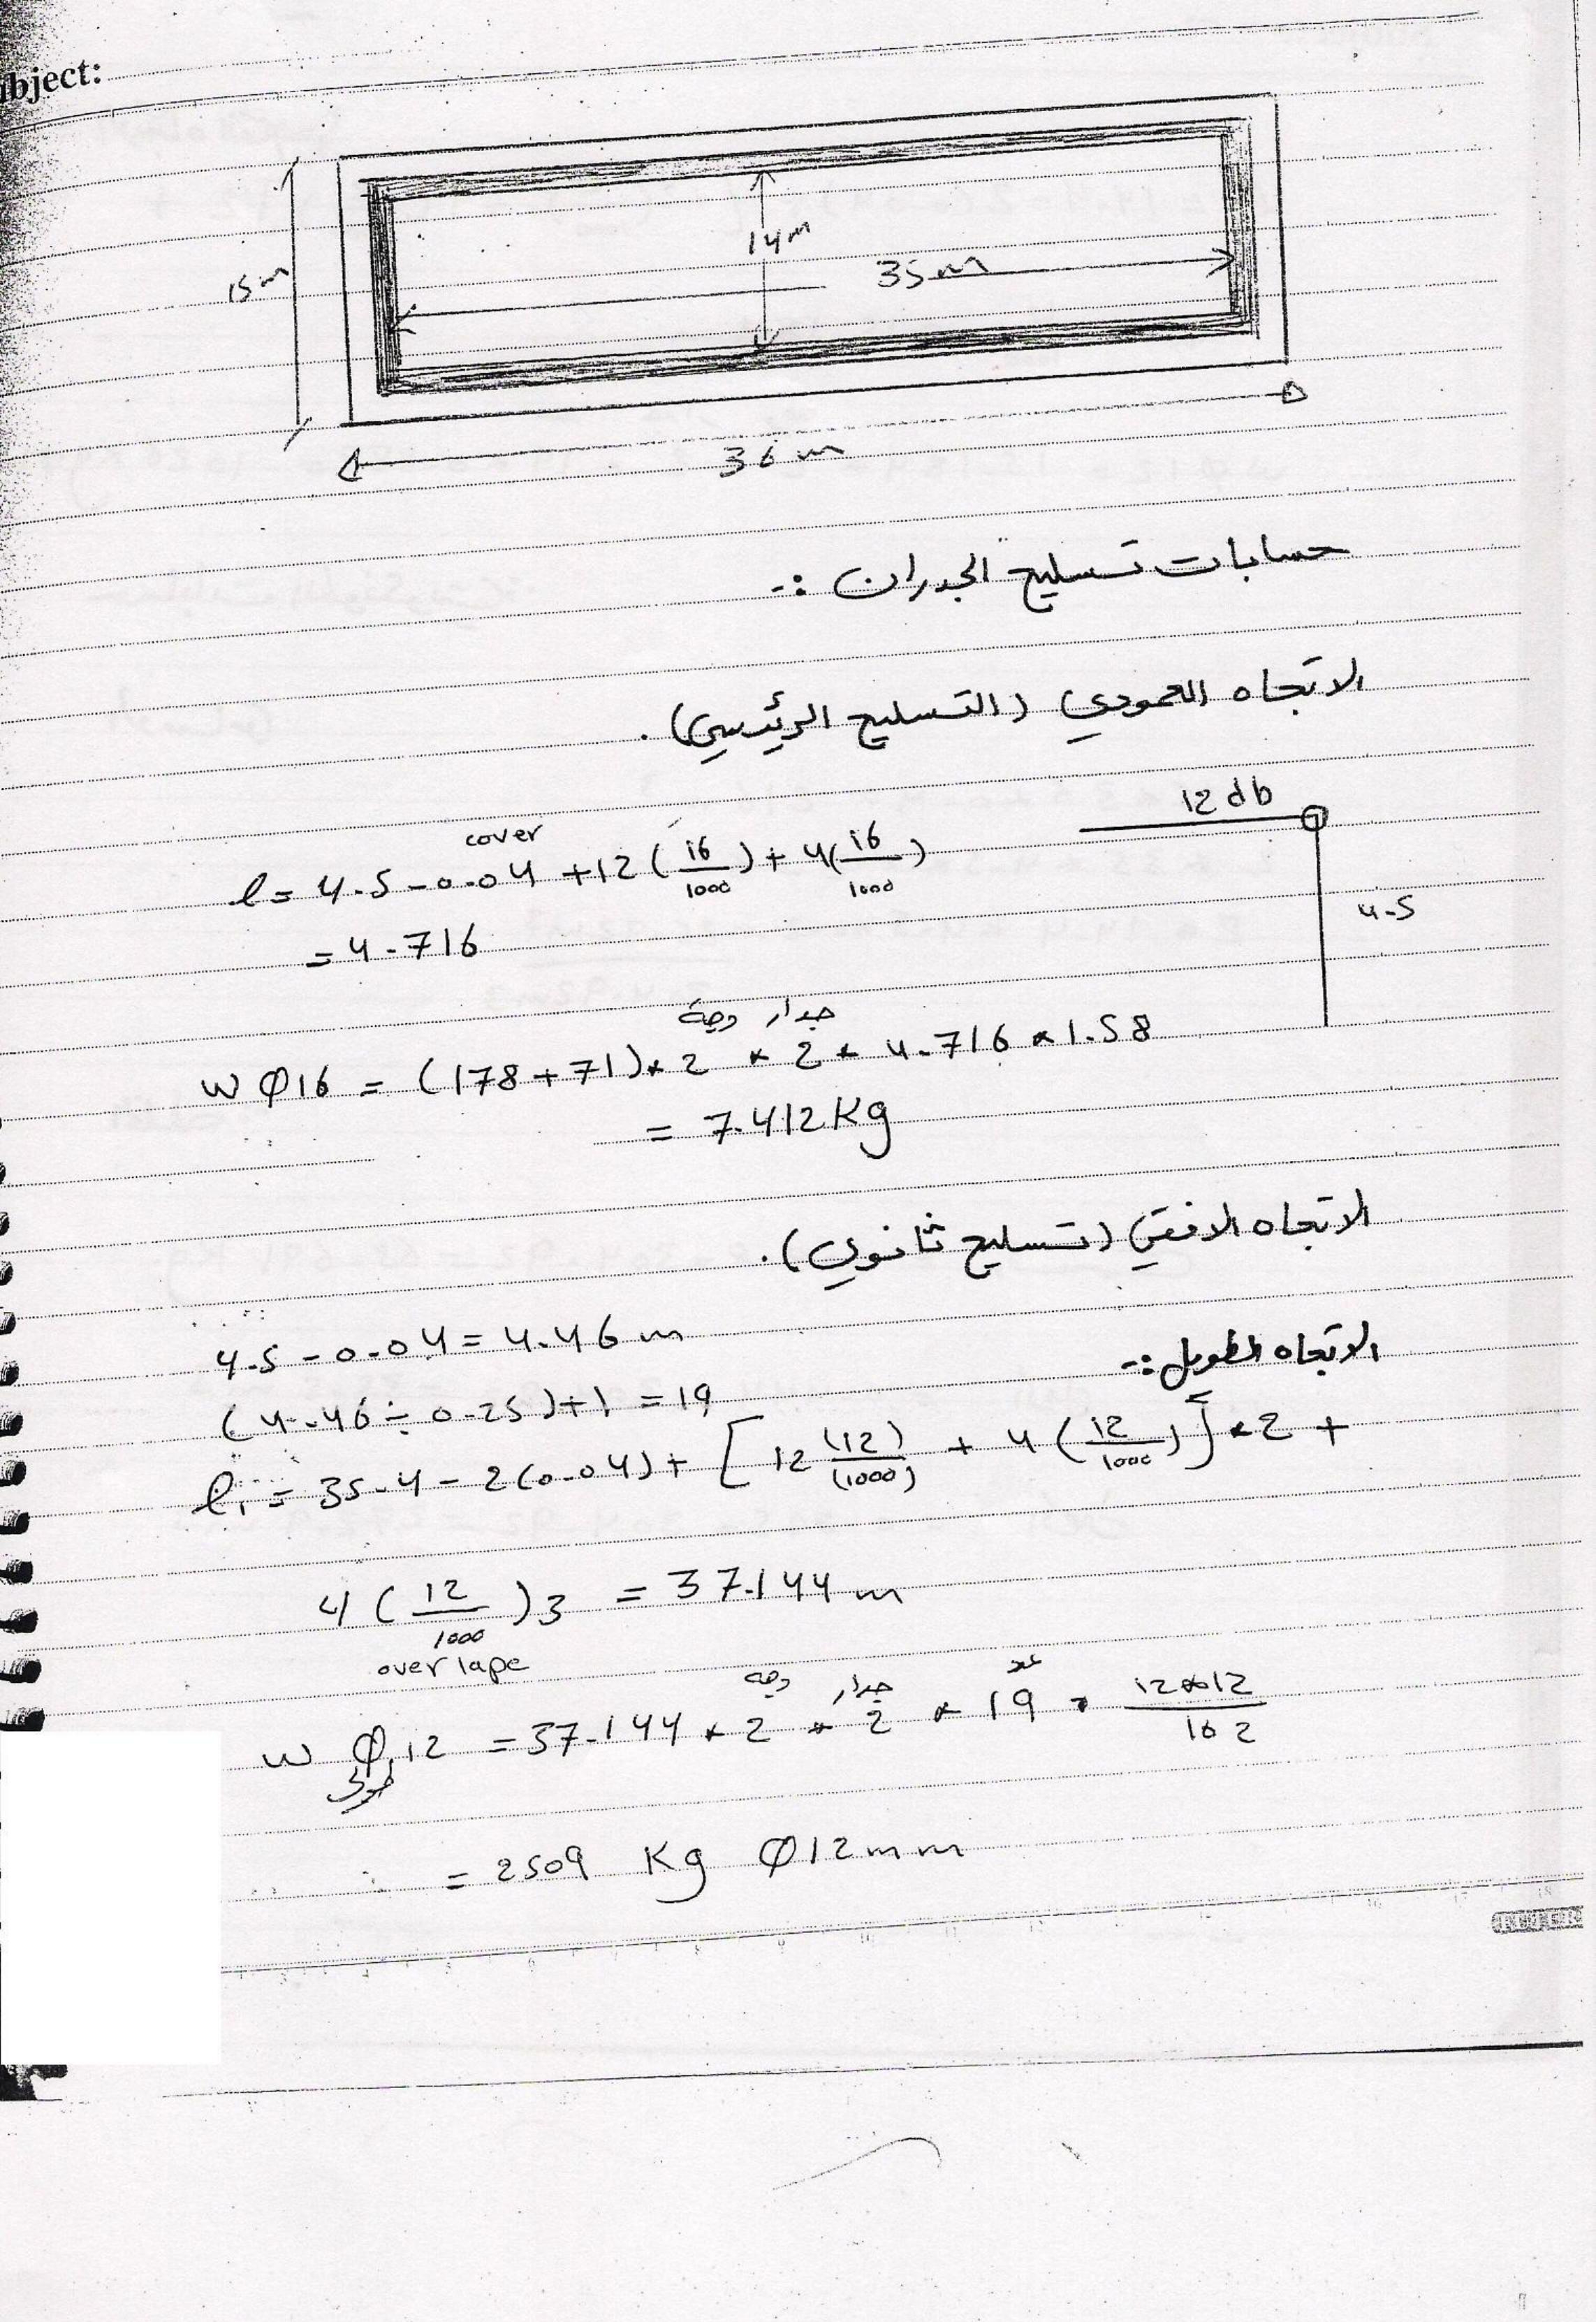 bject:
15m
14m
35m
36m
حسابات تسليح الجدران :-
الاتجاه العمودي (التسليح الرئيسي).
12 db
cover
l = 4.5 - 0.04 + 12 (16/1000) + 4(16/1000)
4.5
= 4.716
جدار وجه
W Ø16 = (178 + 71) * 2 * 2 * 4.716 * 1.58
= 7.412 Kg
الاتجاه الافقي (تسليح ثانوي).
الاتجاه الطويل :-
4.5 - 0.04 = 4.46 m
(4.46 ÷ 0.25) + 1 = 19
l1 = 35.4 - 2(0.04) + [12 (12)/(1000) + 4 (12/1000)] * 2 +
4 (12/1000) 3 = 37.144 m
over lape
وجه جدار عدد
W Ø12 = 37.144 * 2 * 2 * 19 * 12*12/162
طولي
= 2509 Kg Ø12mm